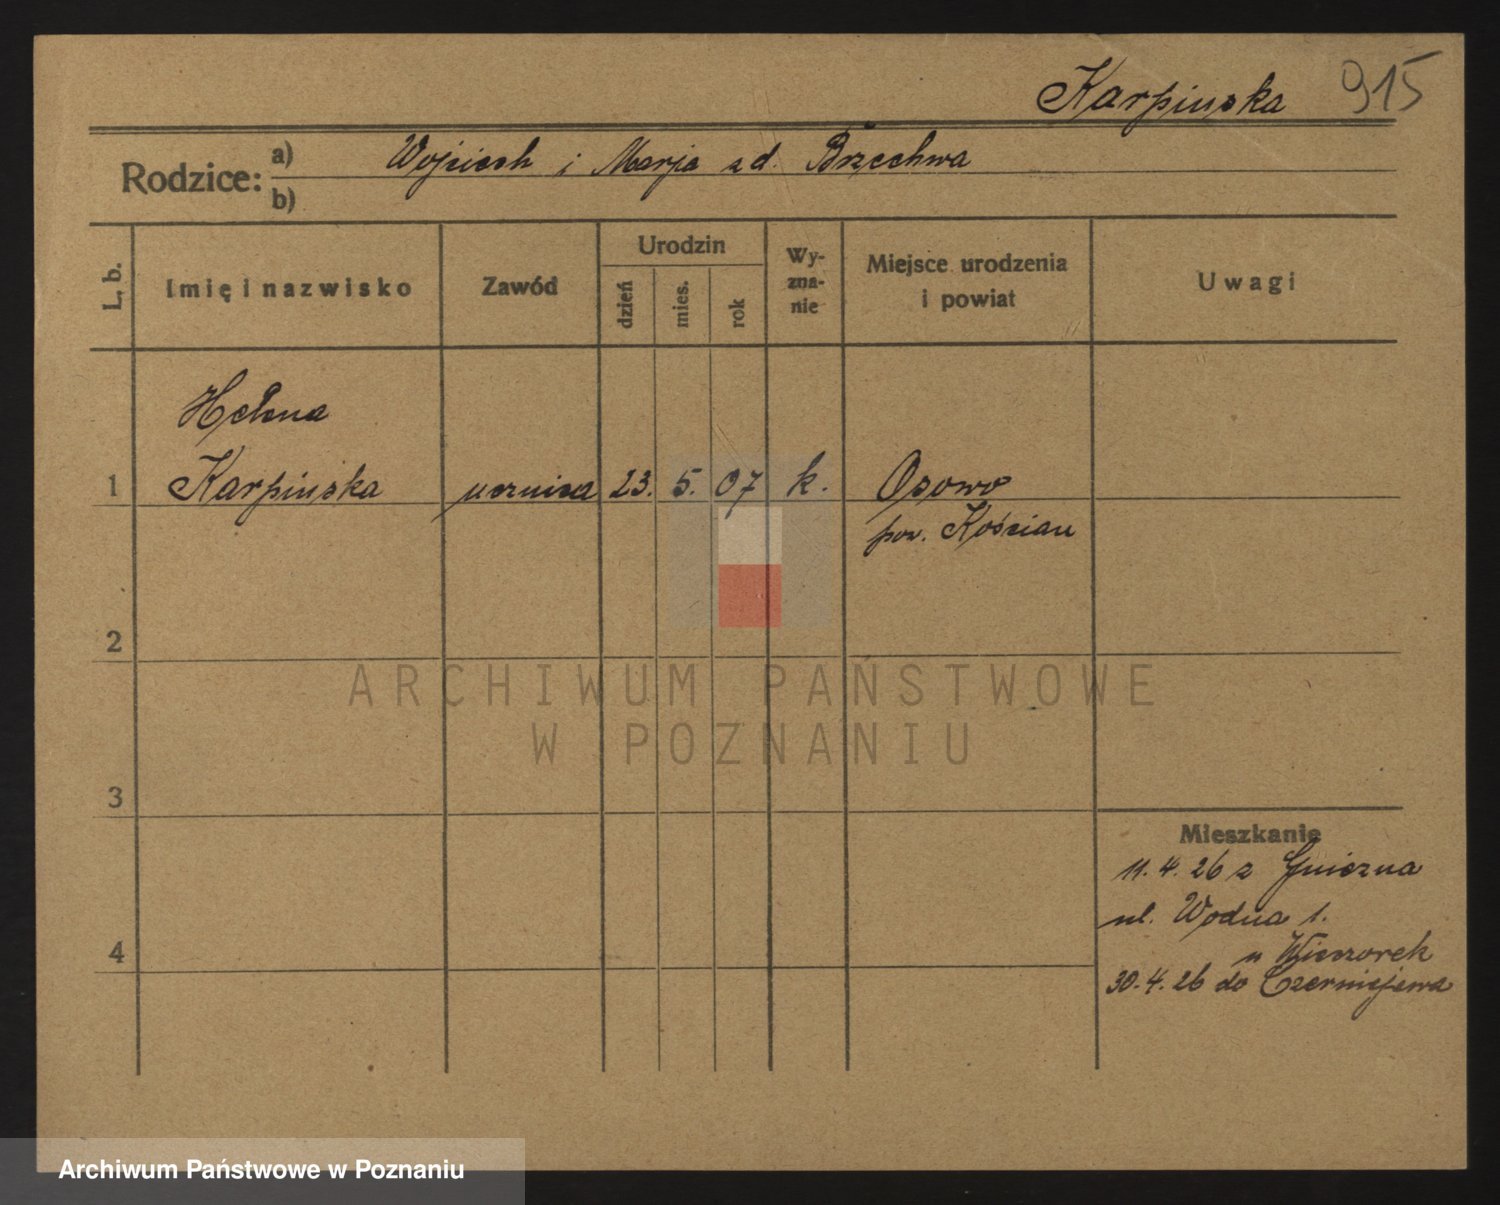 Karpinska 915
Rodzice: a) Wojciech i Marja z d. Brzechwa
b)
L. b.
Imię i nazwisko
Zawód
Urodzin
dzień
mies.
rok
Wy-
zna-
nie
Miejsce urodzenia
i powiat
Uwagi
Helena
1 Karpińska ucznica 23. 5. 07 k. Osowo
pow. Kościan
2
ARCHIWUM PAŃSTWOWE
W POZNANIU
3
Mieszkanie
11.4.26 z Gniezna
ul. Wodna 1.
u Wieczorek
4
30.4.26 do Czerniejewa
Archiwum Państwowe w Poznaniu